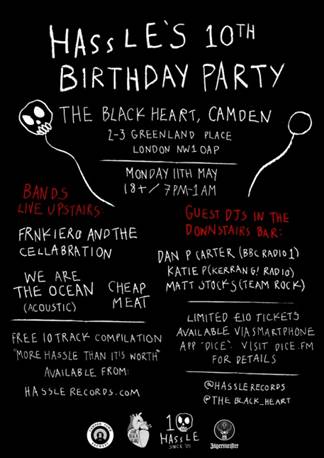 HASSLE'S 10TH
BIRTHDAY PARTY
THE BLACK HEART, CAMDEN
2-3 GREENLAND PLACE
LONDON NW1 0AP
MONDAY 11TH MAY
18+ / 7PM-1AM
BANDS
LIVE UPSTAIRS:
FRNKIERO AND THE
CELLABRATION
WE ARE
THE OCEAN
(ACOUSTIC)
CHEAP
MEAT
GUEST DJS IN THE
DOWNSTAIRS BAR:
DAN P CARTER (BBC RADIO 1)
KATIE P (KERRANG! RADIO)
MATT STOCKS (TEAM ROCK)
FREE 10 TRACK COMPILATION
"MORE HASSLE THAN IT'S WORTH"
AVAILABLE FROM:
HASSLERECORDS.COM
LIMITED £10 TICKETS
AVAILABLE VIA SMARTPHONE
APP "DICE". VISIT DICE.FM
FOR DETAILS
@HASSLERECORDS
@THE_BLACK_HEART
10
HASSLE
SINCE '05
Jägermeister